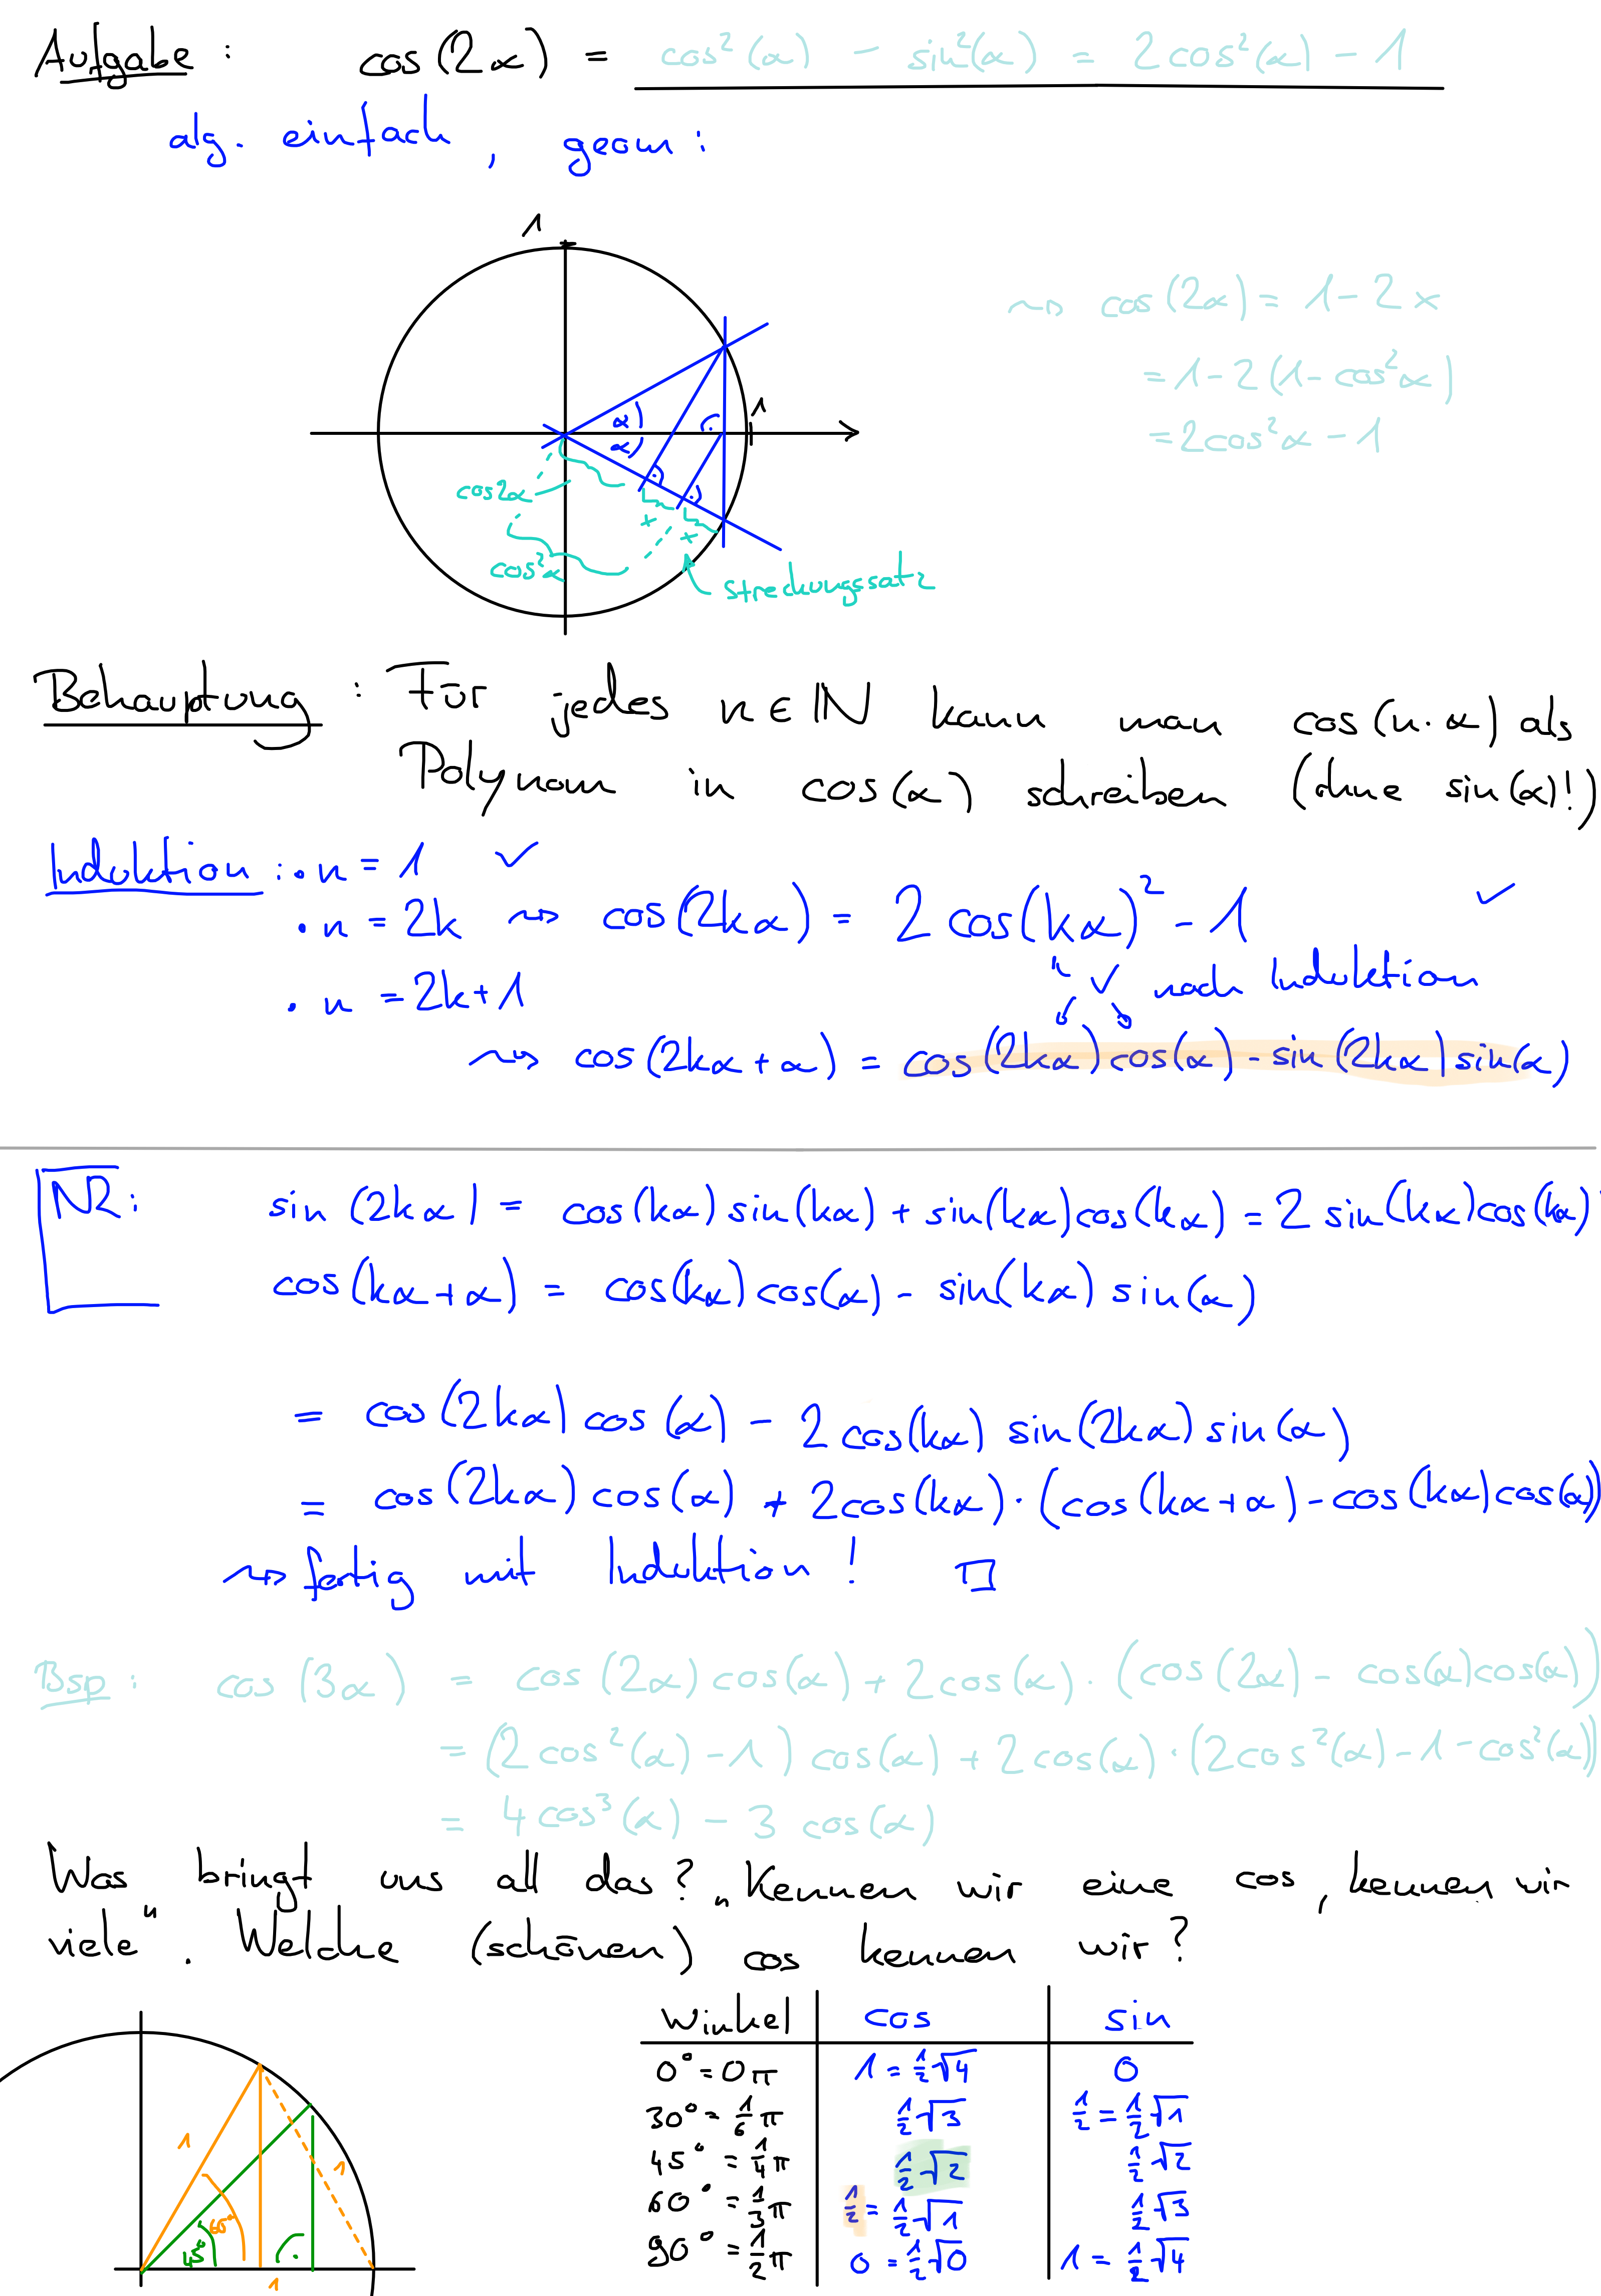 Aufgabe : cos(2α) = cos²(α) - sin²(α) = 2cos²(α) - 1
alg. einfach, geom:
1
⇝ cos(2α) = 1 - 2x
= 1 - 2(1 - cos²α)
= 2cos²α - 1
1
α
α
cos2α
x
x
cos²α
Streckungssatz
Behauptung : Für jedes n ∈ ℕ kann man cos(n·α) als
Polynom in cos(α) schreiben (ohne sin(α)!)
Induktion : • n = 1 ✓
• n = 2k ⇝ cos(2kα) = 2 cos(kα)² - 1 ✓
✓ nach Induktion
• n = 2k+1
⇝ cos(2kα + α) = cos(2kα)cos(α) - sin(2kα)sin(α)
NR: sin(2kα) = cos(kα)sin(kα) + sin(kα)cos(kα) = 2 sin(kα)cos(kα)
cos(kα+α) = cos(kα)cos(α) - sin(kα)sin(α)
= cos(2kα)cos(α) - 2cos(kα) sin(2kα)sin(α)
= cos(2kα)cos(α) + 2cos(kα)·(cos(kα+α) - cos(kα)cos(α))
⇝ fertig mit Induktion! □
Bsp: cos(3α) = cos(2α)cos(α) + 2cos(α)·(cos(2α) - cos(α)cos(α))
= (2cos²(α) - 1)cos(α) + 2cos(α)·(2cos²(α) - 1 - cos²(α))
= 4cos³(α) - 3 cos(α)
Was bringt uns all das? „Kennen wir eine cos, kennen wir
viele". Welche (schönen) cos kennen wir?
Winkel cos sin
0° = 0π 1 = ½√4 0
30° = 1/6 π ½√3 ½ = ½√1
45° = ¼π ½√2 ½√2
60° = 1/3 π ½ = ½√1 ½√3
90° = ½π 0 = ½√0 1 = ½√4
1
1
60°
45°
1